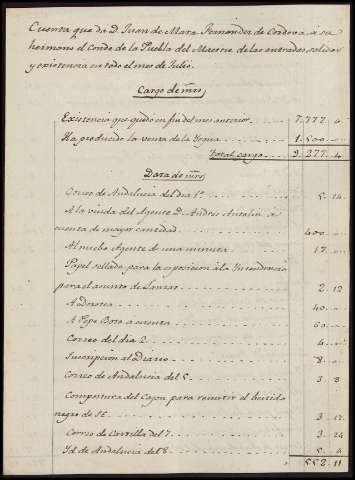 Cuenta que da Dn. Juan de Mata Fernandez de Cordova, á su
hermano el Conde de la Puebla del Maestre de las entradas, salidas
y existencia en todo el mes de Julio.
Cargo de mrs.
Existencia que quedó en fin del mes anterior 7.777. 4
Ha producido la venta de la 1.500
Total cargo 9.277. 4
Data de mrs.
Correo de Andalucia del dia 1º 5. 14
A la viuda del Agente Dn. Andres Antolin á
cuenta de mayor cantidad 400
Al nuebo Agente de una minuta 17
Papel sellado para la esposicion á la Intendencia
para el asunto de 2. 12
A Dorotea 40
A Pepe Boto a cuenta 60
Correo del dia 2 4
Suscripcion al Diario 8
Correo de Andalucia del 5 3. 8
Compostura del Cajon para remitir el bestido
negro de SE. 3. 12
Correo de Castilla del 7 3. 24
Id. de Andalucia del 8 5. 9
552. 11